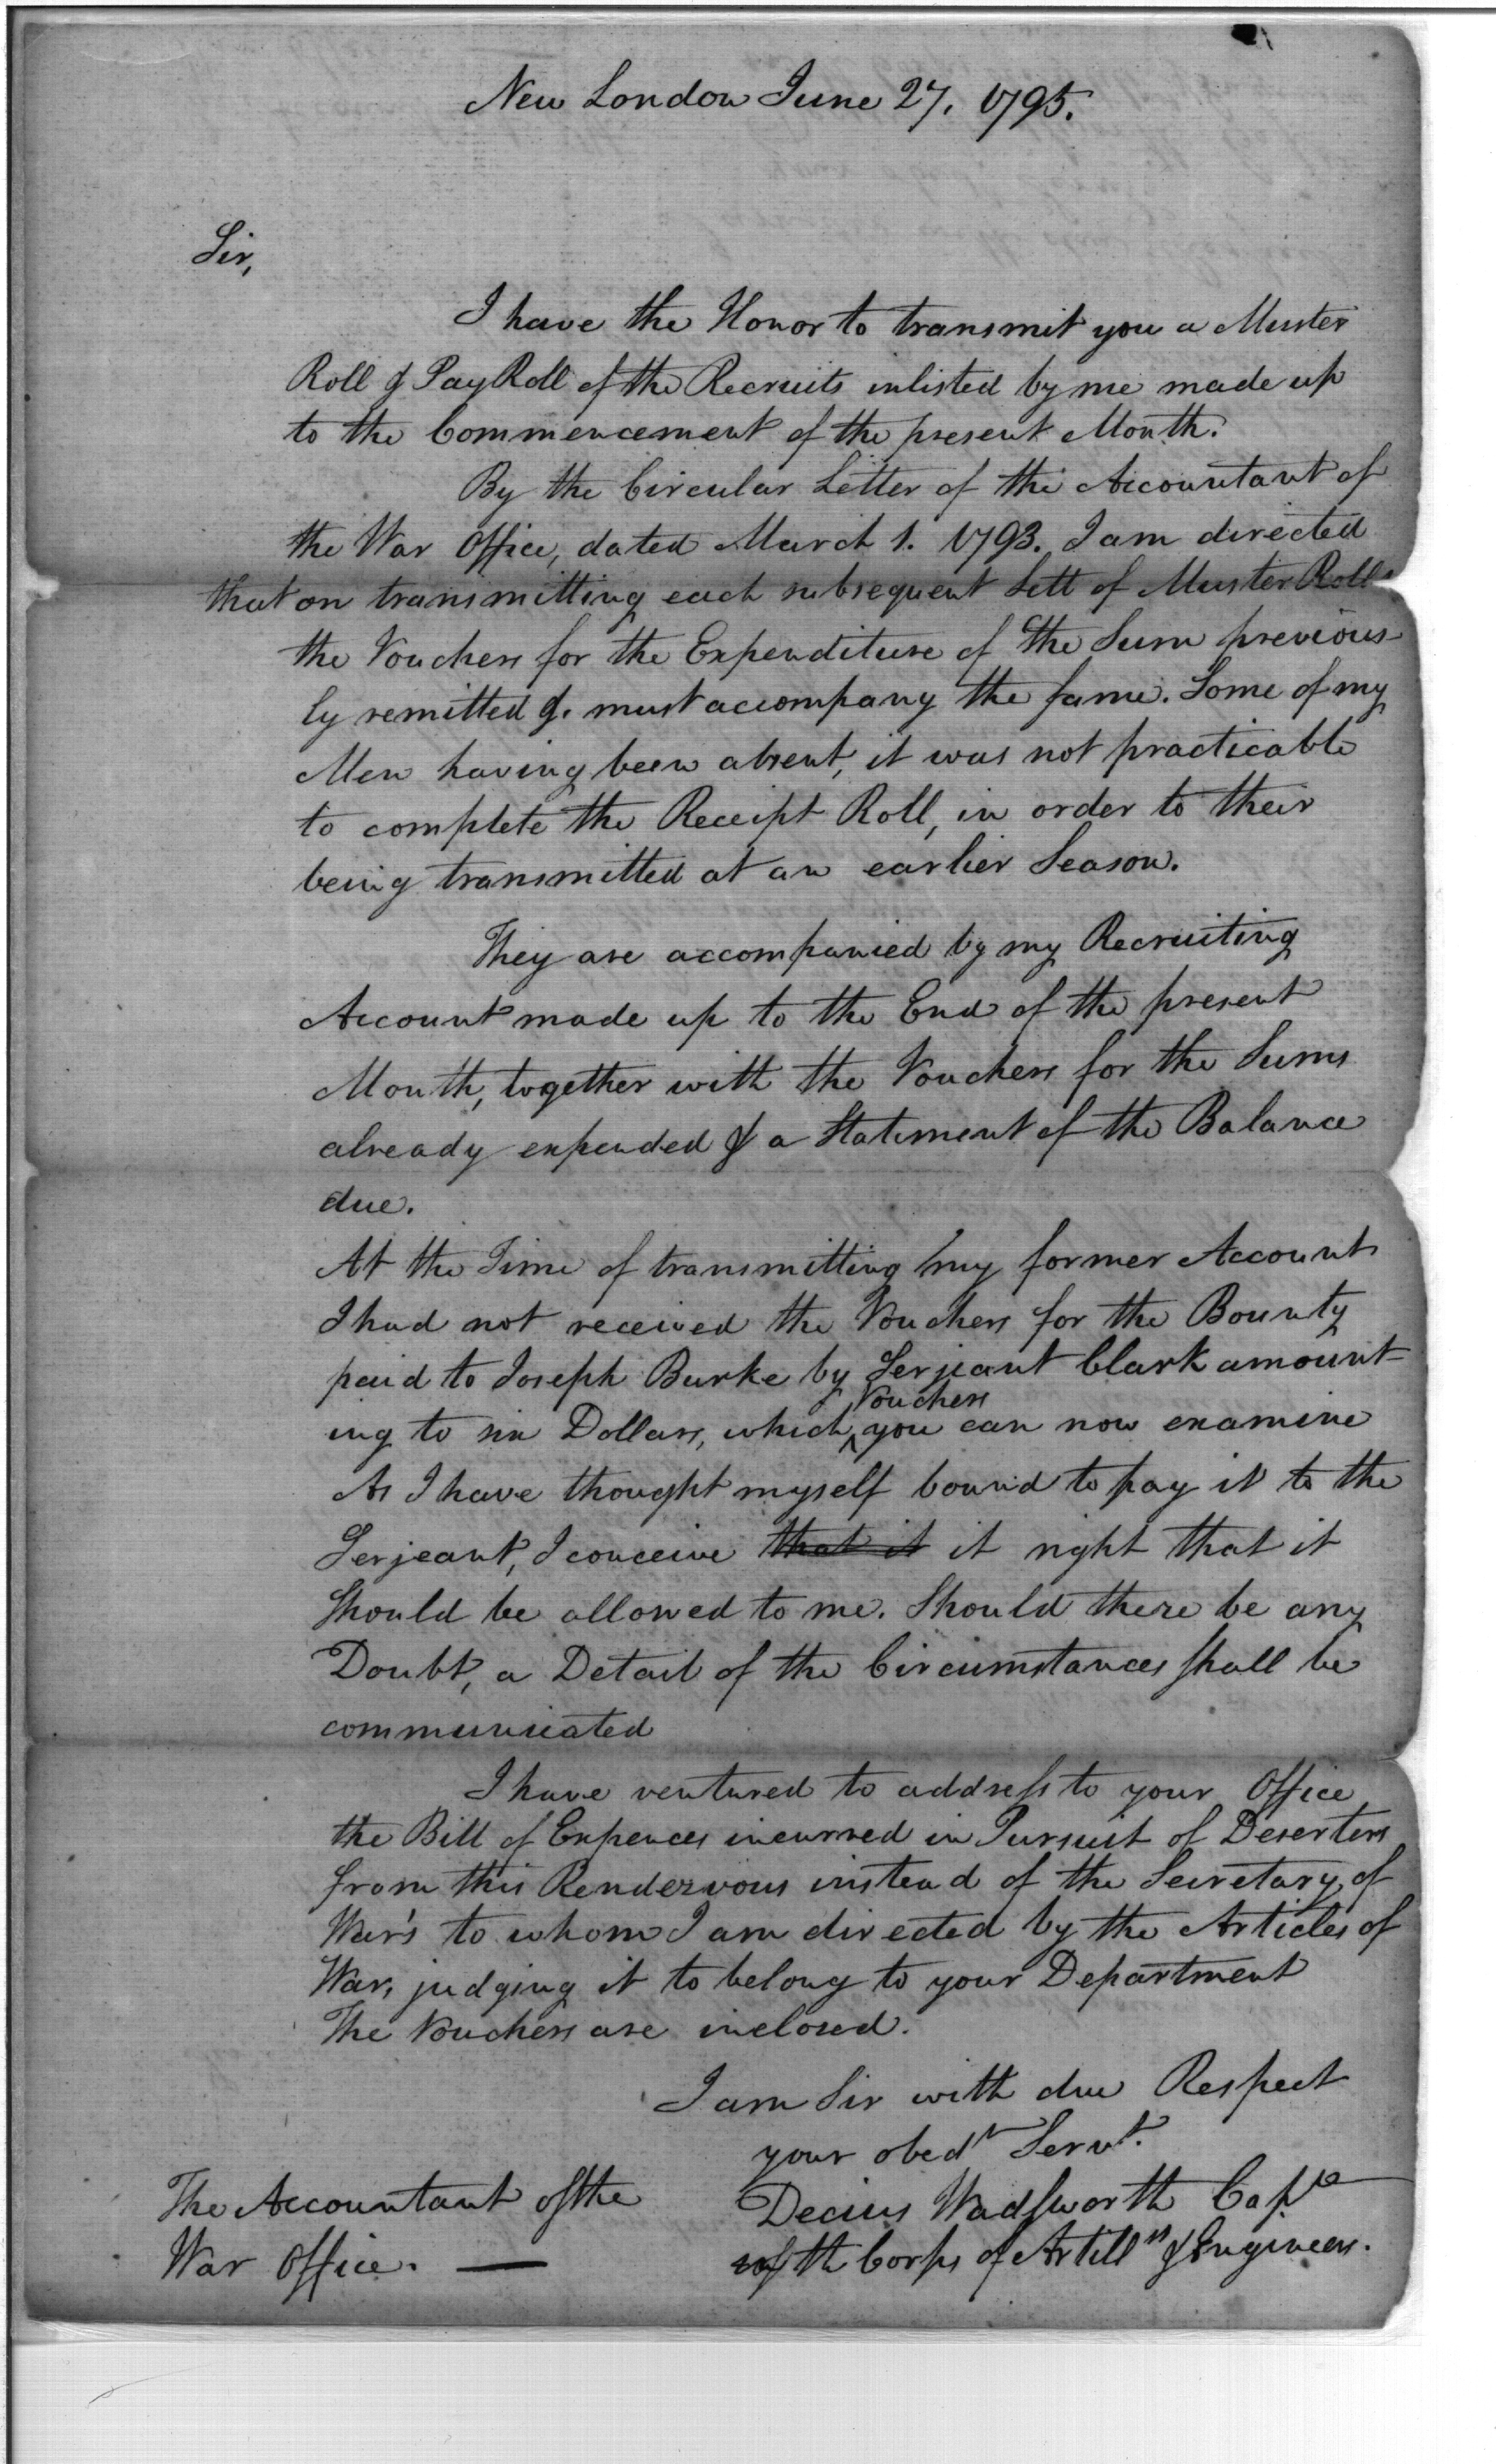 New London June 27. 1795.
Sir,
I have the Honor to transmit you a Muster
Roll & Pay Roll of the Recruits inlisted by me made up
to the Commencement of the present Month.
By the Circular Letter of the Accountant of
the War Office, dated March 1. 1793. I am directed
that on transmitting each subsequent Sett of Muster Rolls
the Vouchers for the Expenditure of the Sum previous-
ly remitted &. must accompany the same. Some of my
Men having been absent, it was not practicable
to complete the Receipt Roll, in order to their
being transmitted at an earlier Season.
They are accompanied by my Recruiting
Account made up to the End of the present
Month, together with the Vouchers for the Sums
already expended & a Statement of the Balance
due.
At the Time of transmitting my former Account
I had not received the Vouchers for the Bounty
paid to Joseph Burke by Serjeant Clark amount-
Vouchers
ing to six Dollars, which ^ you can now examine
As I have thought myself bound to pay it to the
Serjeant, I conceive that it it right that it
should be allowed to me. Should there be any
Doubt, a Detail of the Circumstances shall be
communicated
I have ventured to address to your Office
the Bill of Expences incurred in Pursuit of Deserters
from this Rendezvous instead of the Secretary of
War's to whom I am directed by the Articles of
War, judging it to belong to your Department
The Vouchers are inclosed.
I am Sir with due Respect
your obedt Servt.
Decius Wadsworth Capt
of th Corps of Artilly & Engineers.
The Accountant of the
War Office. —